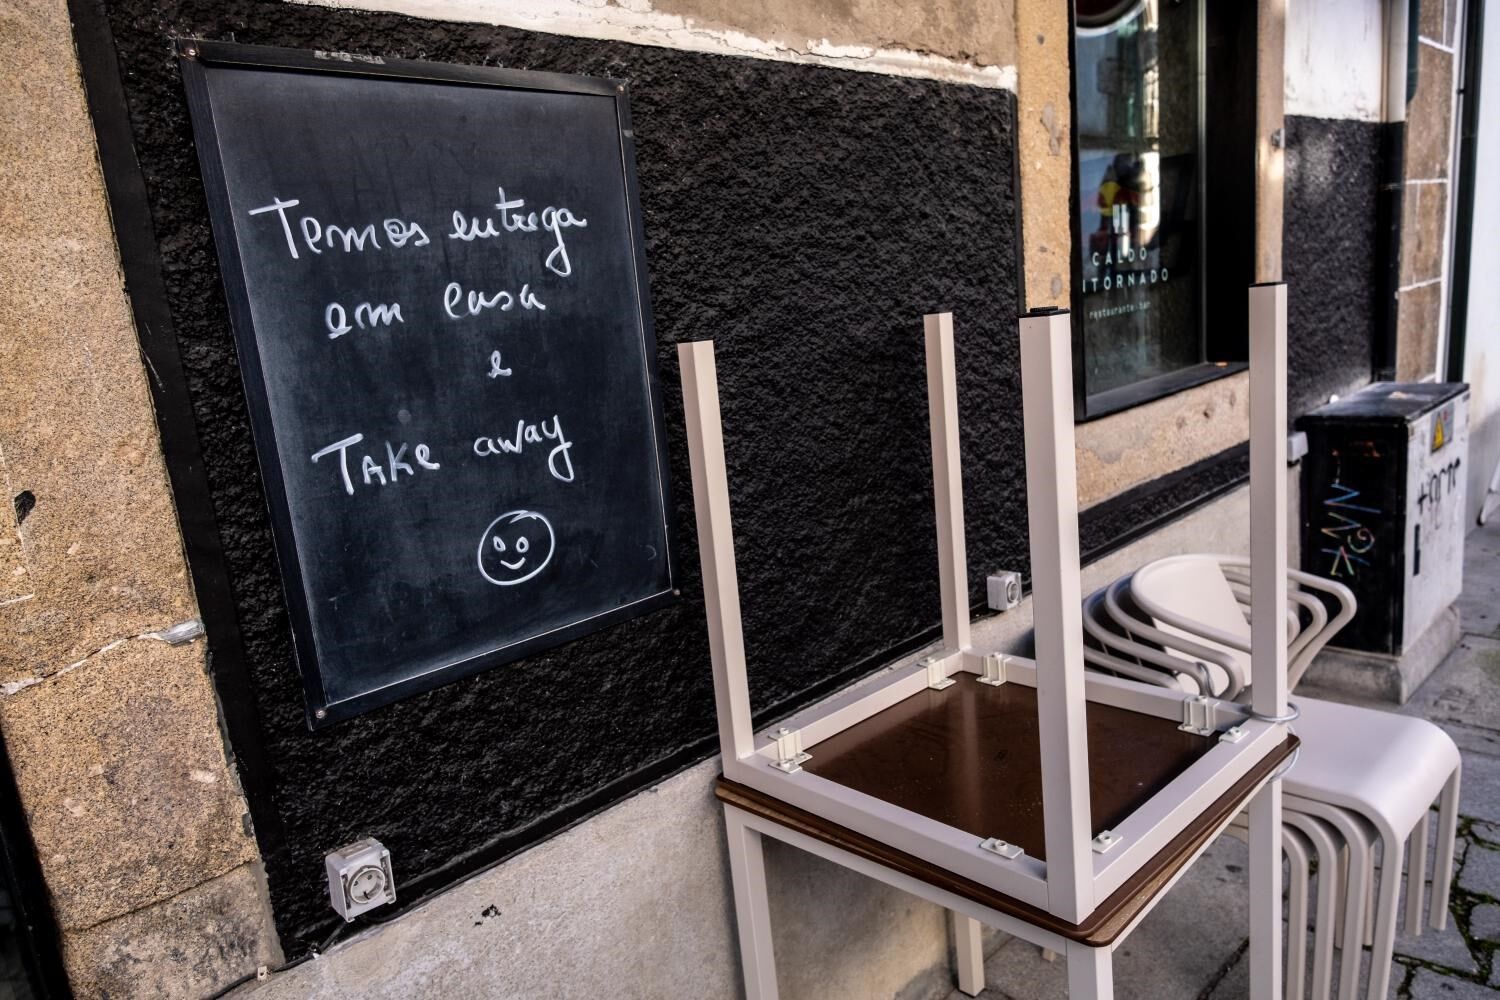 Temos entrega
em casa
e
Take away
CALDO
ITORNADO
restaurante · bar